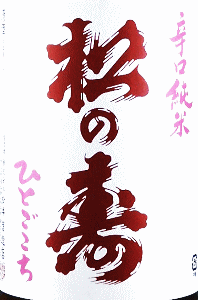 辛口純米
松の寿
ひとごこち